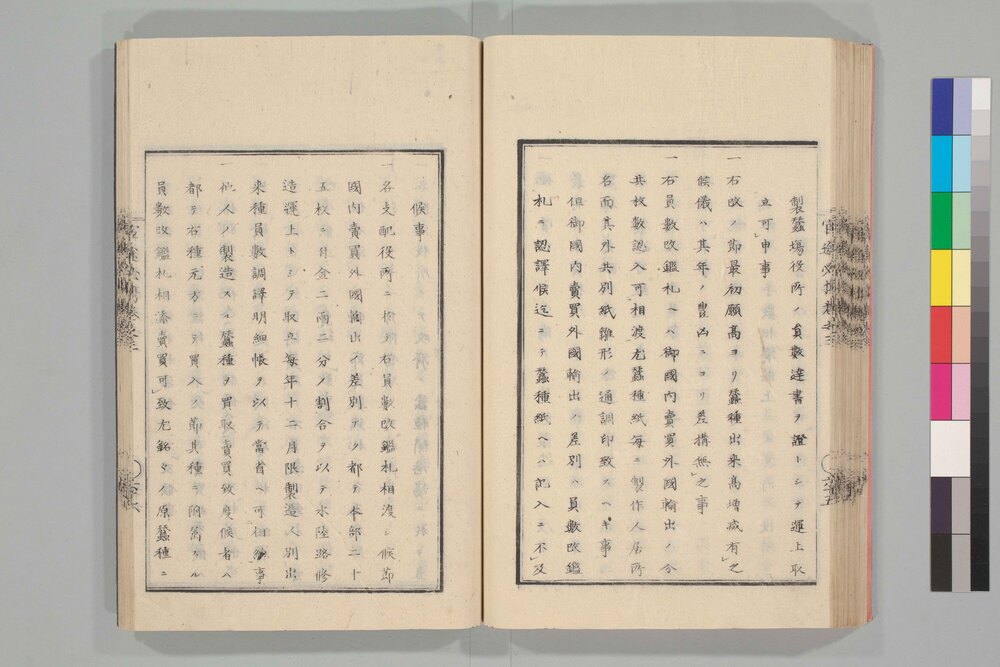 製蠶場役所ノ員數達書ヲ證トシテ運上取
立可申事
一右改ノ節最初願高ヨリ蠶種出来高増减有之
候儀ハ其年ノ豊凶ニヨリ差構無之事
一右員數改鑑札ヘハ御國内賣買外國輸出ノ分
共枚數認入可相渡尤蠶種紙毎ニ製作人居所
名面其外共別紙雛形ノ通調印致スヘキ事
但御國内賣買外國輸出ノ差別ハ員數改鑑
札ニ認譯候迄ニテ蠶種紙ヘハ記入ニ不及
候事
一各支配役所ニ於テ右員數改鑑札相渡シ候節
國内賣買外國輸出ノ差別ナク都テ本部二十
五枚ニ付金二兩二分ノ割合ヲ以テ水陸路修
造運上トシテ取立毎年十二月限製造人別出
来種員數調譯明細帳ヲ以テ當省ヘ可相納事
一他人ノ製造スル蠶種ヲ買取賣買致度候者ハ
都テ右種元方ニテ買入ノ節其種ニ附屬スル
員數改鑑札相添賣買可致尤銘々ノ原蠶種ニ